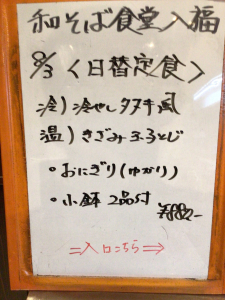 和そば食堂 入福
8/3 〈日替定食〉
冷) 冷やしタヌキ風
温) きざみ玉子とじ
・おにぎり(ゆかり)
・小鉢 2品付
¥880-
⇒入口こちら⇒